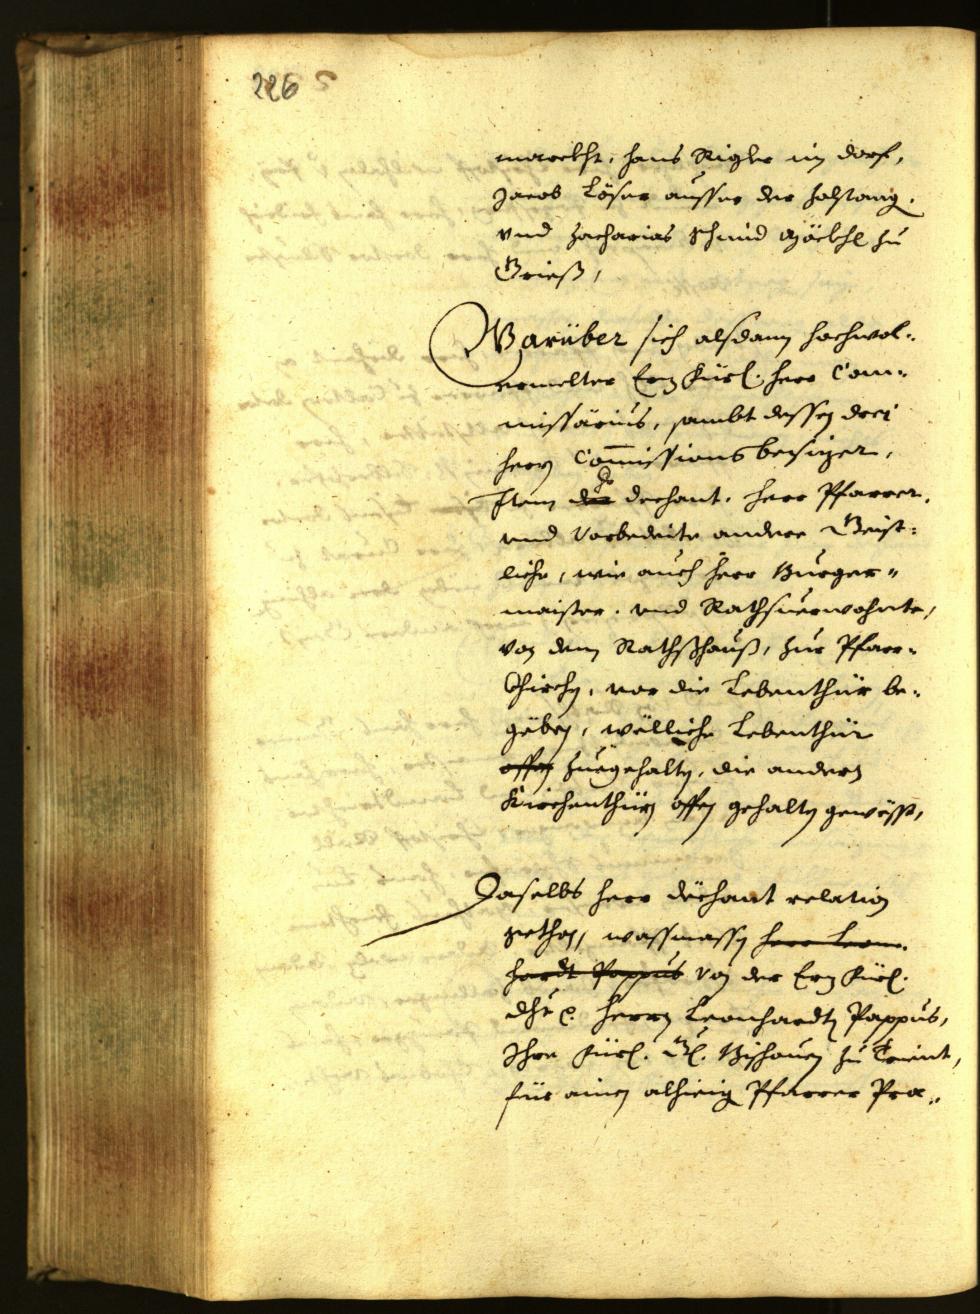 226
marckht, Hans Rigler im dorf,
Jacob Löser ausser der
vnd Zacharias Schmid zu
Grieß,
Warüber sich alsdann hochwol-
ermelter Erz Fürl. herr Com-
missärius, sambt dessen drei
herrn Commissions beisizer,
Item dechant, herr Pfarrer,
vnd vorbedeite andere Geist-
liche, wie auch herr Burger-
maister, vnd Rathsuerwohnte,
von dem Rathßhauß, zur Pfarr-
Khirchen, vor die Lebenthür be-
geben, wölliche Lebenthür
offen zuegehalten, die andern
Kirchenthürn offen gehalten gewösst,
Daselbs herr dechant relation
gethon, wassmassen herr Leon-
hardt Pappus von der Erz Fürl.
dht herrn Leonhardten Pappus,
Ihre Fürl. Gl. Bischouen zu Trient,
für ainen alhieig Pfarrer Prae-